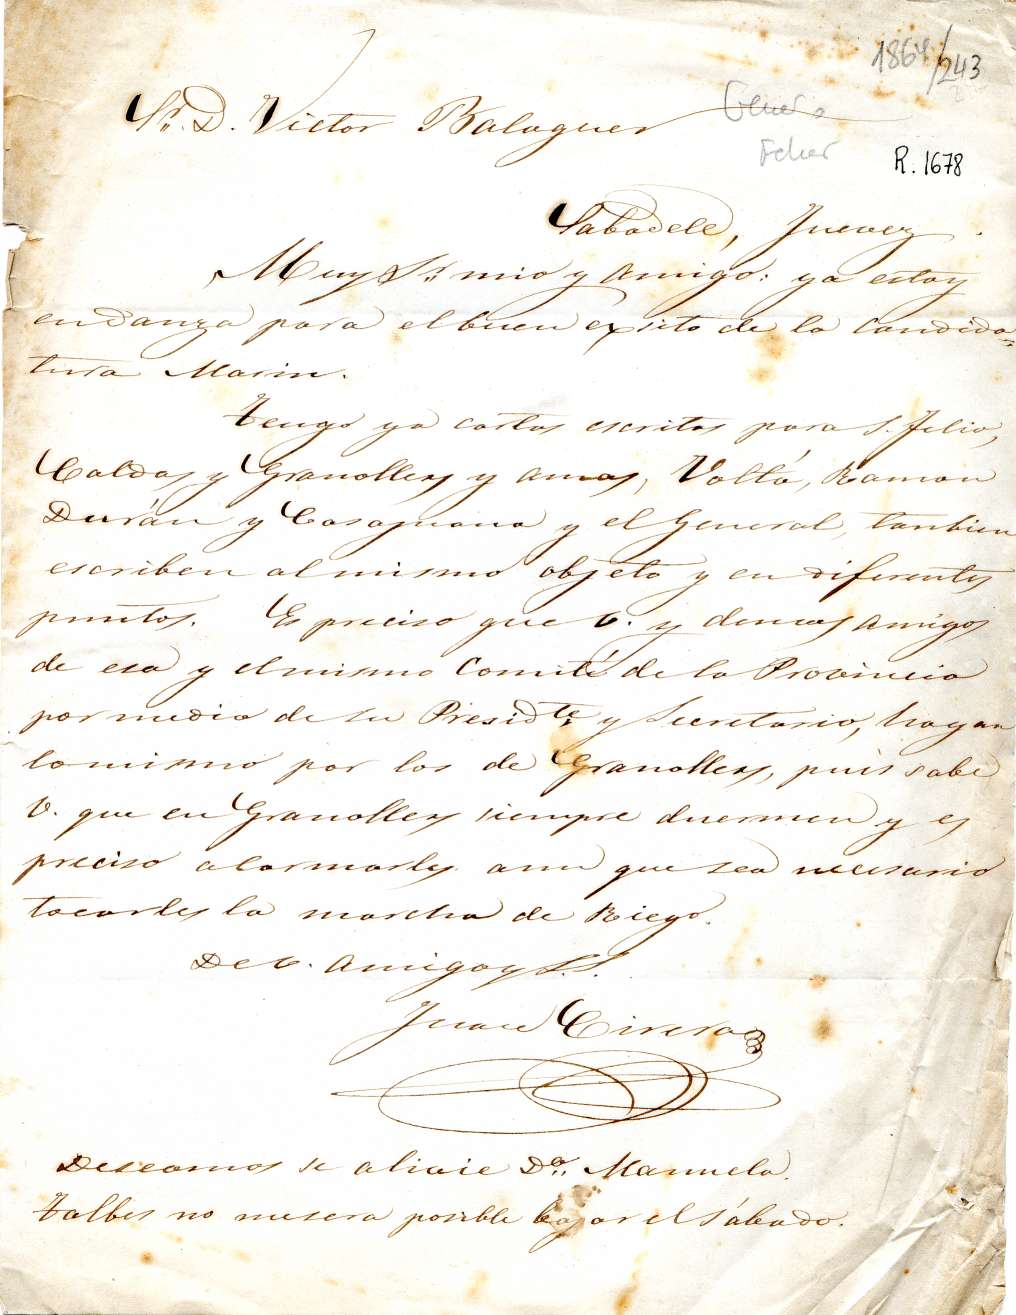 1864/243
Sr. D. Victor Balaguer
Febrer
R. 1678
Sabadell, Juevez.
Muy Sr. mio y amigo: ya estoy
en danza para el buen exsito de la Candida=
tura Marin.
Tengo ya cartas escritas para S. Feliu,
Caldas y Granollers y amas, Voltá, Ramon
Durán y Casajuana y el General, tambien
escriben al mismo objeto y en diferentes
puntos. Es preciso que V. y demas amigos
de esa y el mismo Comité de la Provincia
por medio de su Presidte. y Secretario, hagan
lo mismo por los de Granollers, pues sabe
V. que en Granollers siempre duermen y es
preciso alarmarles aun que sea necesario
tocarles la marcha de Riego.
De V. amigo y S.S.
Juan Cirera
Deseamos se alivie Da. Manuela.
Talbes no me sera posible bajar el sábado.